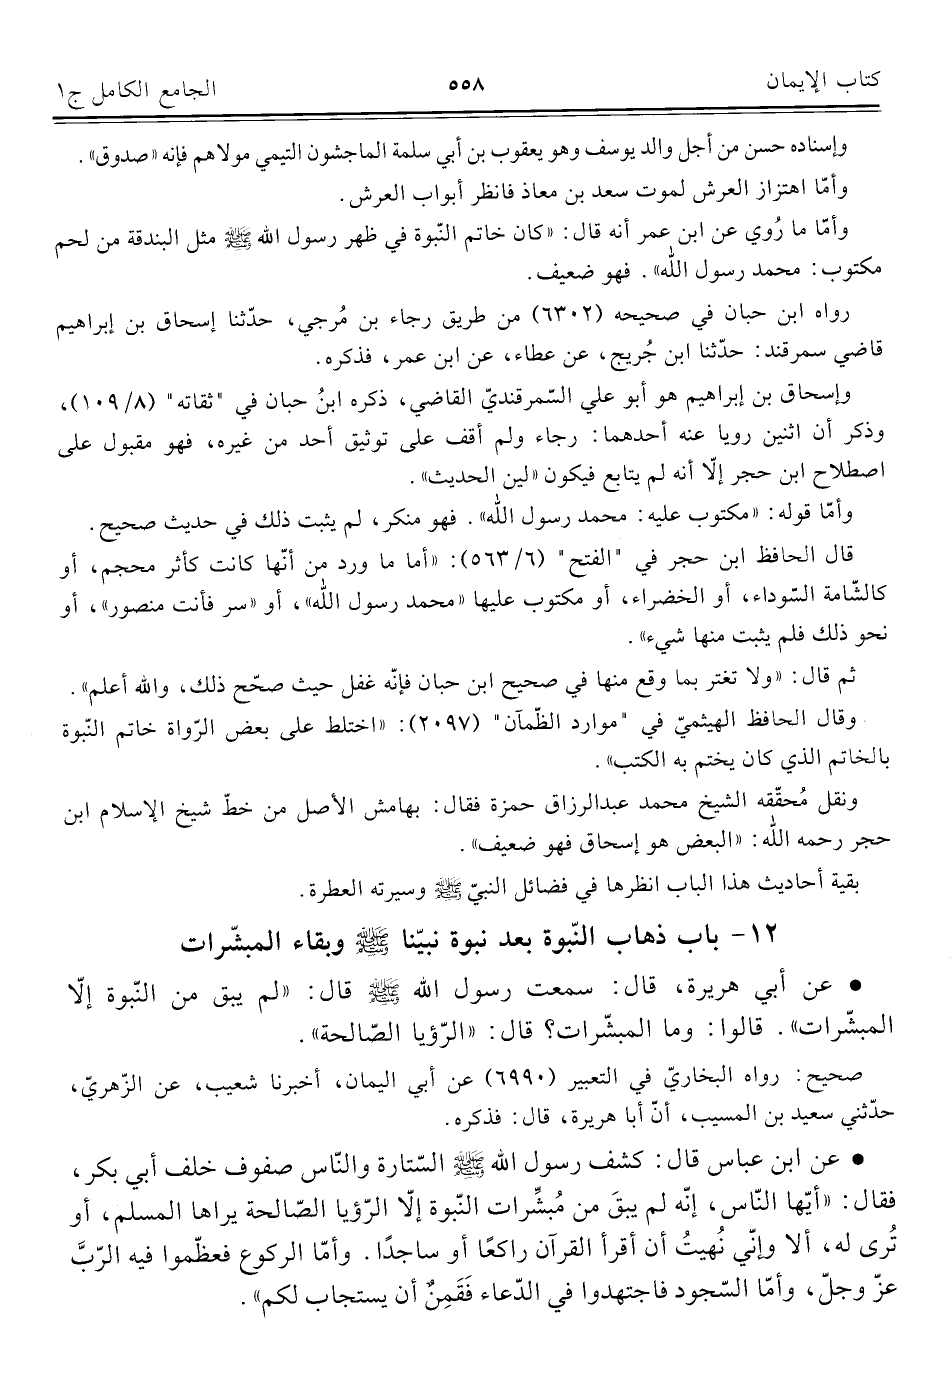 كتاب الإيمان ٥٥٨ الجامع الكامل ج١
وإسناده حسن من أجل والد يوسف وهو يعقوب بن أبي سلمة الماجشون التيمي مولاهم فإنه «صدوق».
وأمّا اهتزاز العرش لموت سعد بن معاذ فانظر أبواب العرش.
وأمّا ما رُوي عن ابن عمر أنه قال: «كان خاتم النّبوة في ظهر رسول الله ﷺ مثل البندقة من لحم
مكتوب: محمد رسول الله». فهو ضعيف.
رواه ابن حبان في صحيحه (٦٣٠٢) من طريق رجاء بن مُرجي، حدّثنا إسحاق بن إبراهيم
قاضي سمرقند: حدّثنا ابن جُريج، عن عطاء، عن ابن عمر، فذكره.
وإسحاق بن إبراهيم هو أبو علي السّمرقنديّ القاضي، ذكره ابنُ حبان في "ثقاته" (٨/ ١٠٩)،
وذكر أن اثنين رويا عنه أحدهما: رجاء ولم أقف على توثيق أحد من غيره، فهو مقبول على
اصطلاح ابن حجر إلّا أنه لم يتابع فيكون «لين الحديث».
وأمّا قوله: «مكتوب عليه: محمد رسول الله». فهو منكر، لم يثبت ذلك في حديث صحيح.
قال الحافظ ابن حجر في "الفتح" (٦/ ٥٦٣): «أما ما ورد من أنّها كانت كأثر محجم، أو
كالشّامة السّوداء، أو الخضراء، أو مكتوب عليها «محمد رسول الله»، أو «سر فأنت منصور»، أو
نحو ذلك فلم يثبت منها شيء».
ثم قال: «ولا تغتر بما وقع منها في صحيح ابن حبان فإنّه غفل حيث صحّح ذلك، والله أعلم».
وقال الحافظ الهيثميّ في "موارد الظّمآن" (٢٠٩٧): «اختلط على بعض الرّواة خاتم النّبوة
بالخاتم الذي كان يختم به الكتب».
ونقل مُحقّقه الشيخ محمد عبدالرزاق حمزة فقال: بهامش الأصل من خطّ شيخ الإسلام ابن
حجر رحمه الله: «البعض هو إسحاق فهو ضعيف».
بقية أحاديث هذا الباب انظرها في فضائل النبيّ ﷺ وسيرته العطرة.
١٢- باب ذهاب النّبوة بعد نبوة نبيّنا ﷺ وبقاء المبشّرات
• عن أبي هريرة، قال: سمعت رسول الله ﷺ قال: «لم يبق من النّبوة إلّا
المبشّرات». قالوا: وما المبشّرات؟ قال: «الرّؤيا الصّالحة».
صحيح: رواه البخاريّ في التعبير (٦٩٩٠) عن أبي اليمان، أخبرنا شعيب، عن الزّهريّ،
حدّثني سعيد بن المسيب، أنّ أبا هريرة، قال: فذكره.
• عن ابن عباس قال: كشف رسول الله ﷺ السّتارة والنّاس صفوف خلف أبي بكر،
فقال: «أيّها النّاس، إنّه لم يبقَ من مُبشِّرات النّبوة إلّا الرّؤيا الصّالحة يراها المسلم، أو
تُرى له، ألا وإنّي نُهيتُ أن أقرأ القرآن راكعًا أو ساجدًا. وأمّا الركوع فعظّموا فيه الرّبَّ
عزّ وجلّ، وأمّا السّجود فاجتهدوا في الدّعاء فَقَمِنٌ أن يستجاب لكم».